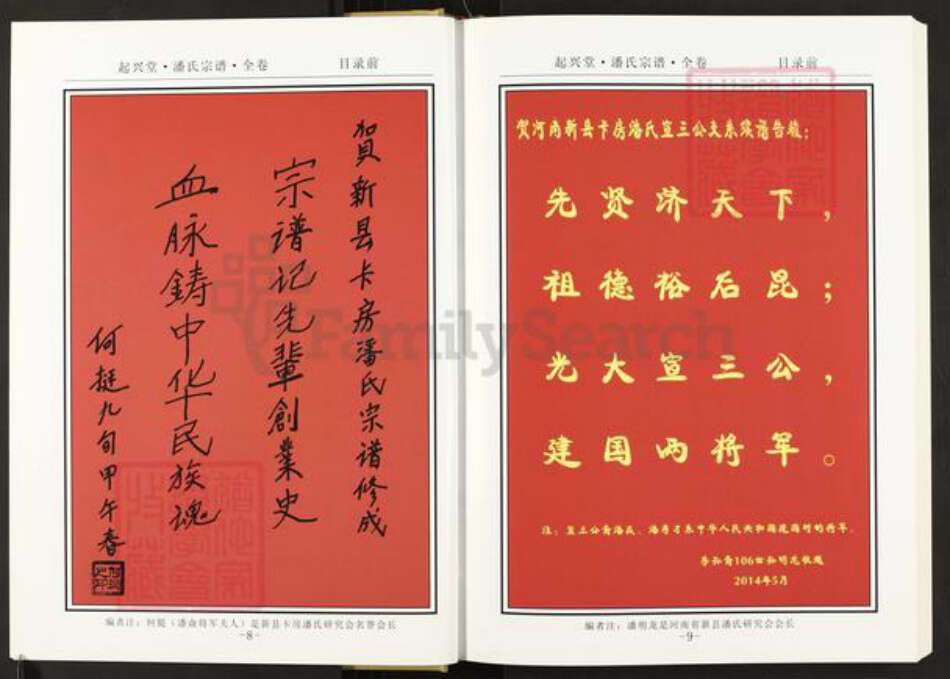 起兴堂·潘氏宗谱·全卷 目录前
賀新县卡房潘氏宗谱修成
宗谱记先輩創業史
血脉鑄中华民族魂
何挺九旬甲午春
编者注：何挺（潘焱将军夫人）是新县卡房潘氏研究会名誉会长
-8-
起兴堂·潘氏宗谱·全卷 目录前
贺河南新县卡房潘氏宣三公支系续谱告竣：
先贤济天下，
祖德裕后昆；
光大宣三公，
建国两将军。
注：宣三公裔潘焱、潘寿才系中华人民共和国建国时的将军。
季孙裔106世孙明龙敬题
2014年5月
编者注：潘明龙是河南省新县潘氏研究会会长
-9-
FamilySearch